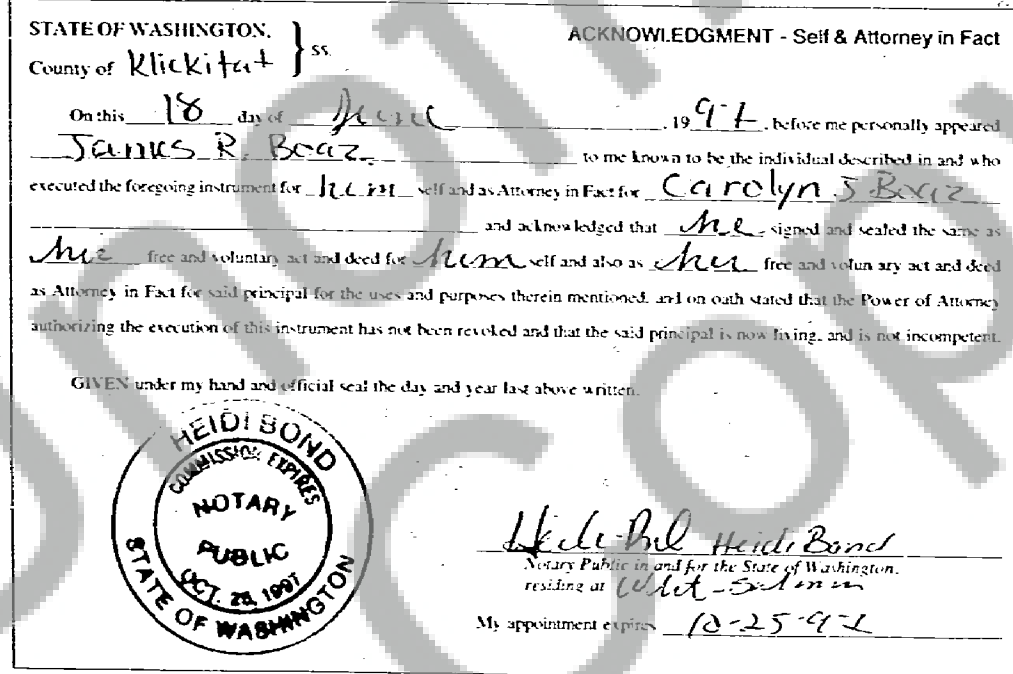 STATE OF WASHINGTON, } SS. ACKNOWLEDGMENT - Self & Attorney in Fact
County of Klickitat
On this 18 day of June , 19 97 , before me personally appeared
James R. Boaz to me known to be the individual described in and who
executed the foregoing instrument for him self and as Attorney in Fact for Carolyn J Boaz
and acknowledged that he signed and sealed the same as
his free and voluntary act and deed for him self and also as her free and volun ary act and deed
as Attorney in Fact for said principal for the uses and purposes therein mentioned, and on oath stated that the Power of Attorney
authorizing the execution of this instrument has not been revoked and that the said principal is now living, and is not incompetent.
GIVEN under my hand and official seal the day and year last above written.
HEIDI BOND
COMMISSION EXPIRES
NOTARY
PUBLIC
OCT. 25, 1997
STATE OF WASHINGTON
Heidi Bond Heidi Bond
Notary Public in and for the State of Washington,
residing at White Salmon
My appointment expires 10-25-97